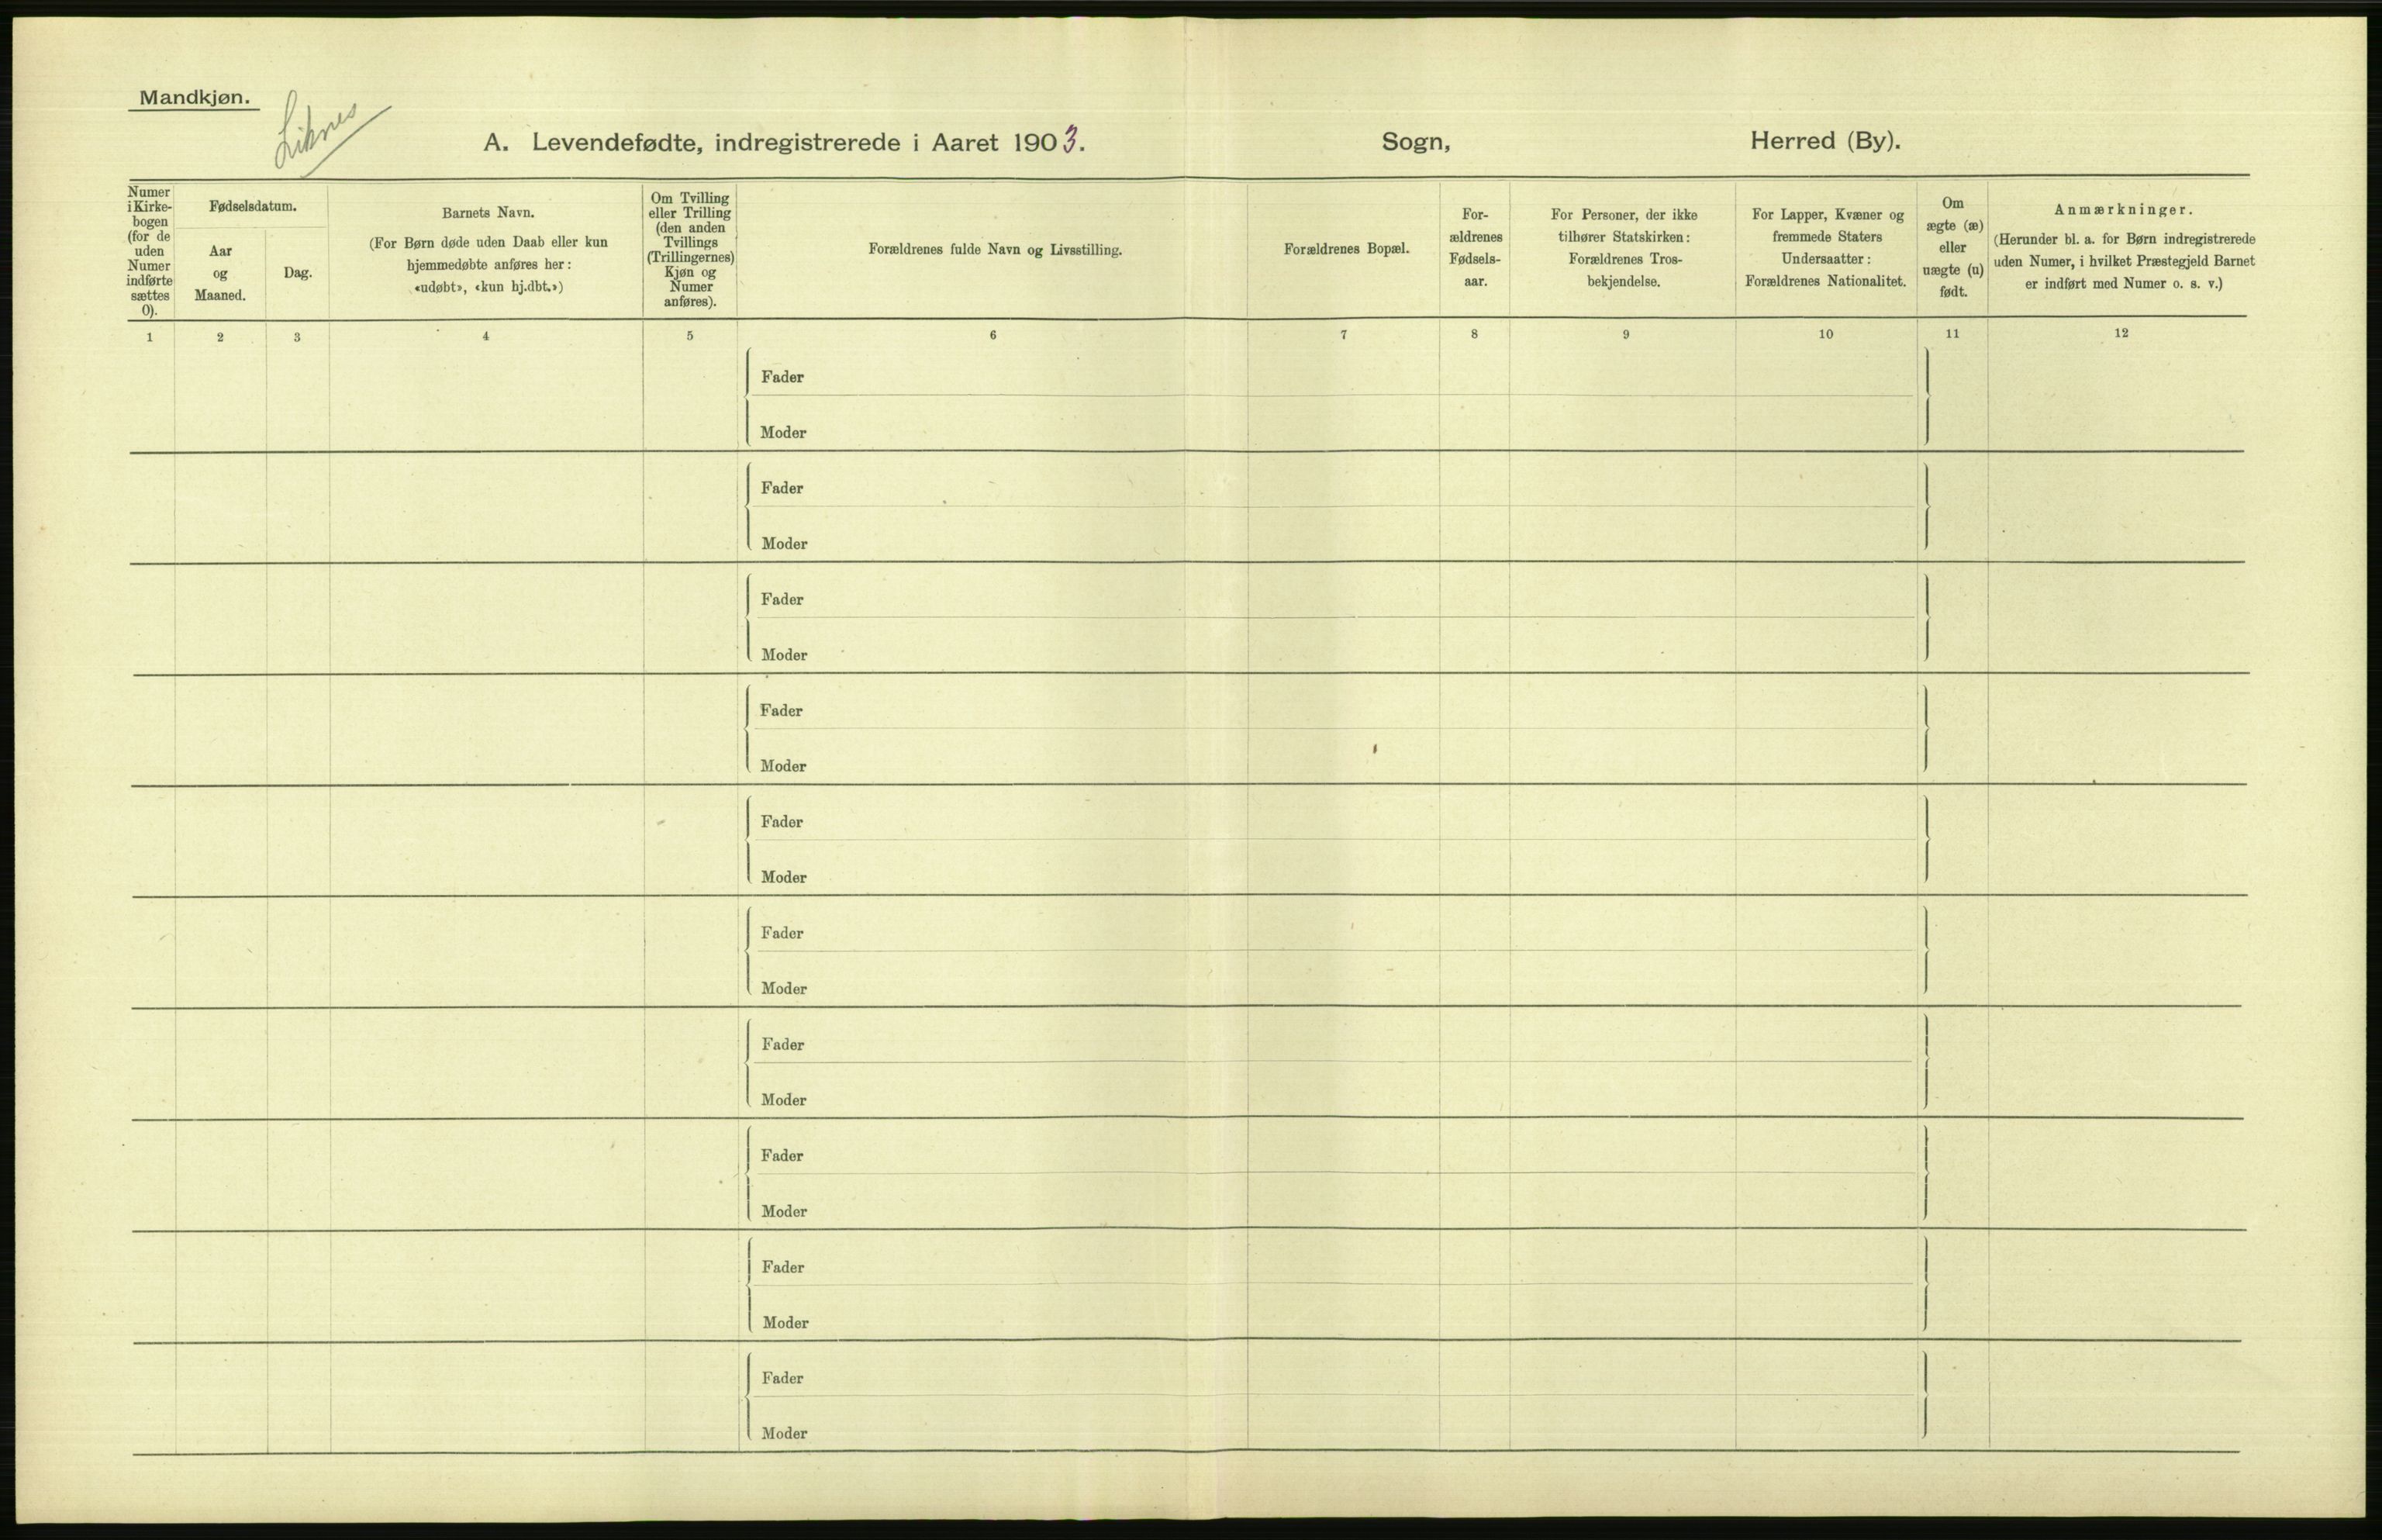 Mandkjøn.
Liknes
A. Levendefødte, indregistrerede i Aaret 1903. Sogn, Herred (By).
Numer
i Kirke-
bogen
(for de
uden
Numer
indførte
sættes
0).
Fødselsdatum.
Aar
og
Maaned.
Dag.
Barnets Navn.
(For Børn døde uden Daab eller kun
hjemmedøbte anføres her:
«udøbt», «kun hj.dbt.»)
Om Tvilling
eller Trilling
(den anden
Tvillings
(Trillingernes)
Kjøn og
Numer
anføres).
Forældrenes fulde Navn og Livsstilling.
Forældrenes Bopæl.
For-
ældrenes
Fødsels-
aar.
For Personer, der ikke
tilhører Statskirken:
Forældrenes Tros-
bekjendelse.
For Lapper, Kvæner og
fremmede Staters
Undersaatter:
Forældrenes Nationalitet.
Om
ægte (æ)
eller
uægte (u)
født.
Anmærkninger.
(Herunder bl. a. for Børn indregistrerede
uden Numer, i hvilket Præstegjeld Barnet
er indført med Numer o. s. v.)
1 2 3 4 5 6 7 8 9 10 11 12
Fader
Moder
Fader
Moder
Fader
Moder
Fader
Moder
Fader
Moder
Fader
Moder
Fader
Moder
Fader
Moder
Fader
Moder
Fader
Moder